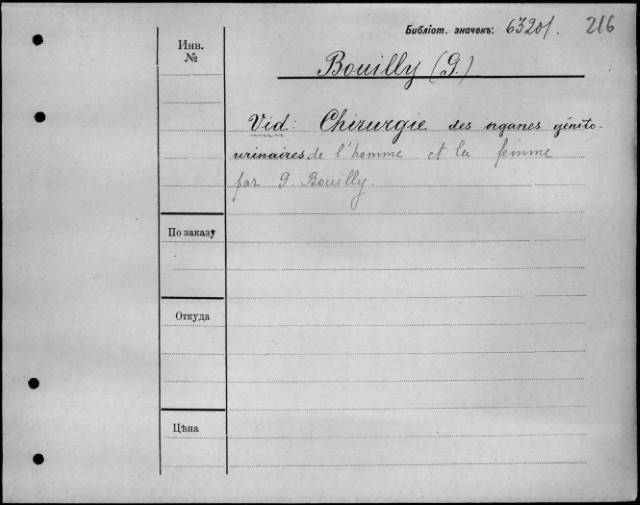 Библіот. значекъ: 6320/. 216
Инв.
№
Bouilly (G.)
Vid: Chirurgie des organes génito-
urinaires de l'homme et la femme
par G Bouilly.
По заказу
Откуда
Цѣна